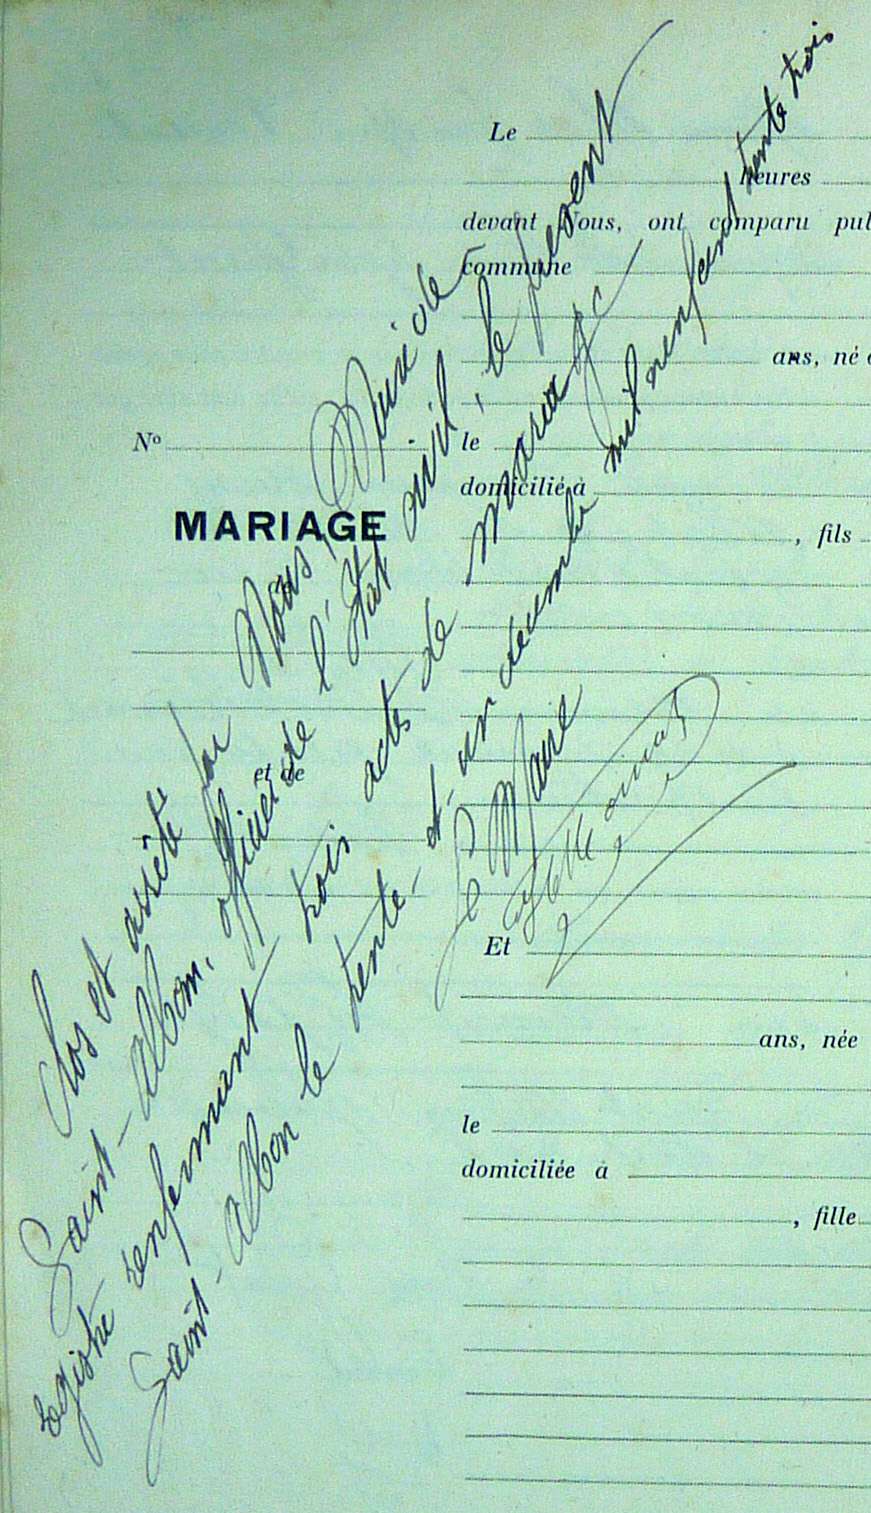 Nº
MARIAGE
de
et de
Le
heures
devant Nous, ont comparu pul
commune
ans, né
le
domicilié à
, fils
Et
ans, née
le
domiciliée à
, fille
Clos et arrêté par Nous, Maire de
Saint-Albon, officier de l'État civil, le présent
registre renfermant trois actes de mariage
Saint-Albon le trente-et-un decembre mil neuf cent trente trois
Le Maire